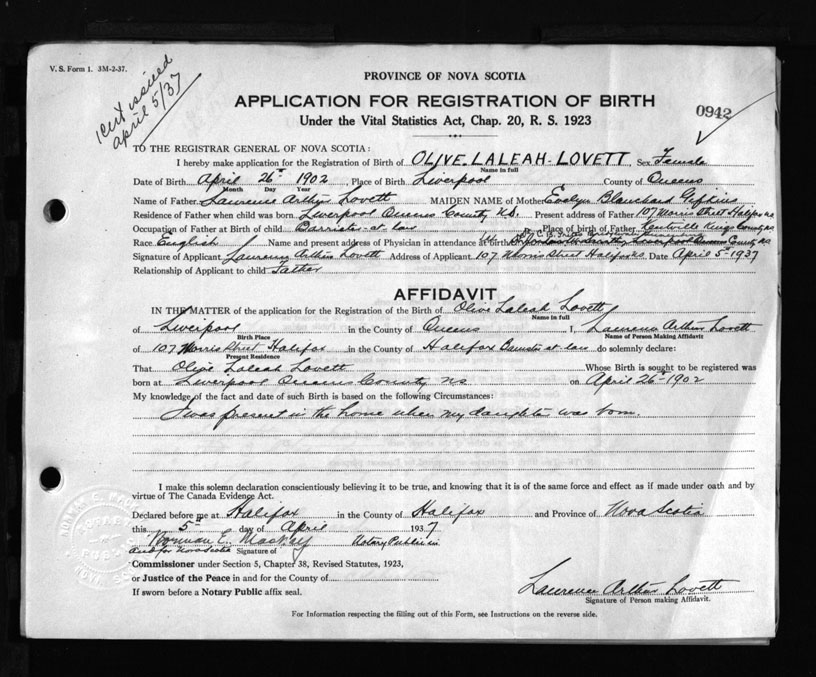 V. S. Form 1. 3M-2-37.
Cert issued
april 5/37
PROVINCE OF NOVA SCOTIA
APPLICATION FOR REGISTRATION OF BIRTH
0942
Under the Vital Statistics Act, Chap. 20, R. S. 1923
TO THE REGISTRAR GENERAL OF NOVA SCOTIA:
I hereby make application for the Registration of Birth of OLIVE LALEAH LOVETT, Sex Female
Name in full
Date of Birth April 26th 1902, Place of Birth Liverpool County of Queens
Month Day Year
Name of Father Laurence Arthur Lovett MAIDEN NAME of Mother Evelyn Blanchard
Residence of Father when child was born Liverpool Queens County, N.S. Present address of Father 107 Morris Street Halifax N.S.
Occupation of Father at Birth of child Barrister at law Place of birth of Father Kentville Kings County N.S.
Race English Name and present address of Physician in attendance at birth Liverpool Queens County N.S.
Signature of Applicant Laurence Arthur Lovett Address of Applicant 107 Morris Street Halifax N.S. Date April 5-1937
Relationship of Applicant to child Father
AFFIDAVIT
IN THE MATTER of the application for the Registration of Birth of Olive Laleah Lovett
Name in full
of Liverpool in the County of Queens I, Laurence Arthur Lovett
Birth Place Name of Person Making Affidavit
of 107 Morris Street Halifax in the County of Halifax Barrister at law do solemnly declare:
Present Residence
That Olive Laleah Lovett Whose Birth is sought to be registered was
born at Liverpool Queens County NS on April 26-1902
My knowledge of the fact and date of such Birth is based on the following Circumstances:
I was present in the home when my daughter was born.
I make this solemn declaration conscientiously believing it to be true, and knowing that it is of the same force and effect as if made under oath and by
virtue of The Canada Evidence Act.
Declared before me at Halifax in the County of Halifax and Province of Nova Scotia
this 5th day of April 1937
Norman E. MacKay Notary Public in
and for Nova Scotia Signature of
Commissioner under Section 5, Chapter 38, Revised Statutes, 1923,
or Justice of the Peace in and for the County of
If sworn before a Notary Public affix seal.
Laurence Arthur Lovett
Signature of Person making Affidavit.
For Information respecting the filling out of this Form, see Instructions on the reverse side.